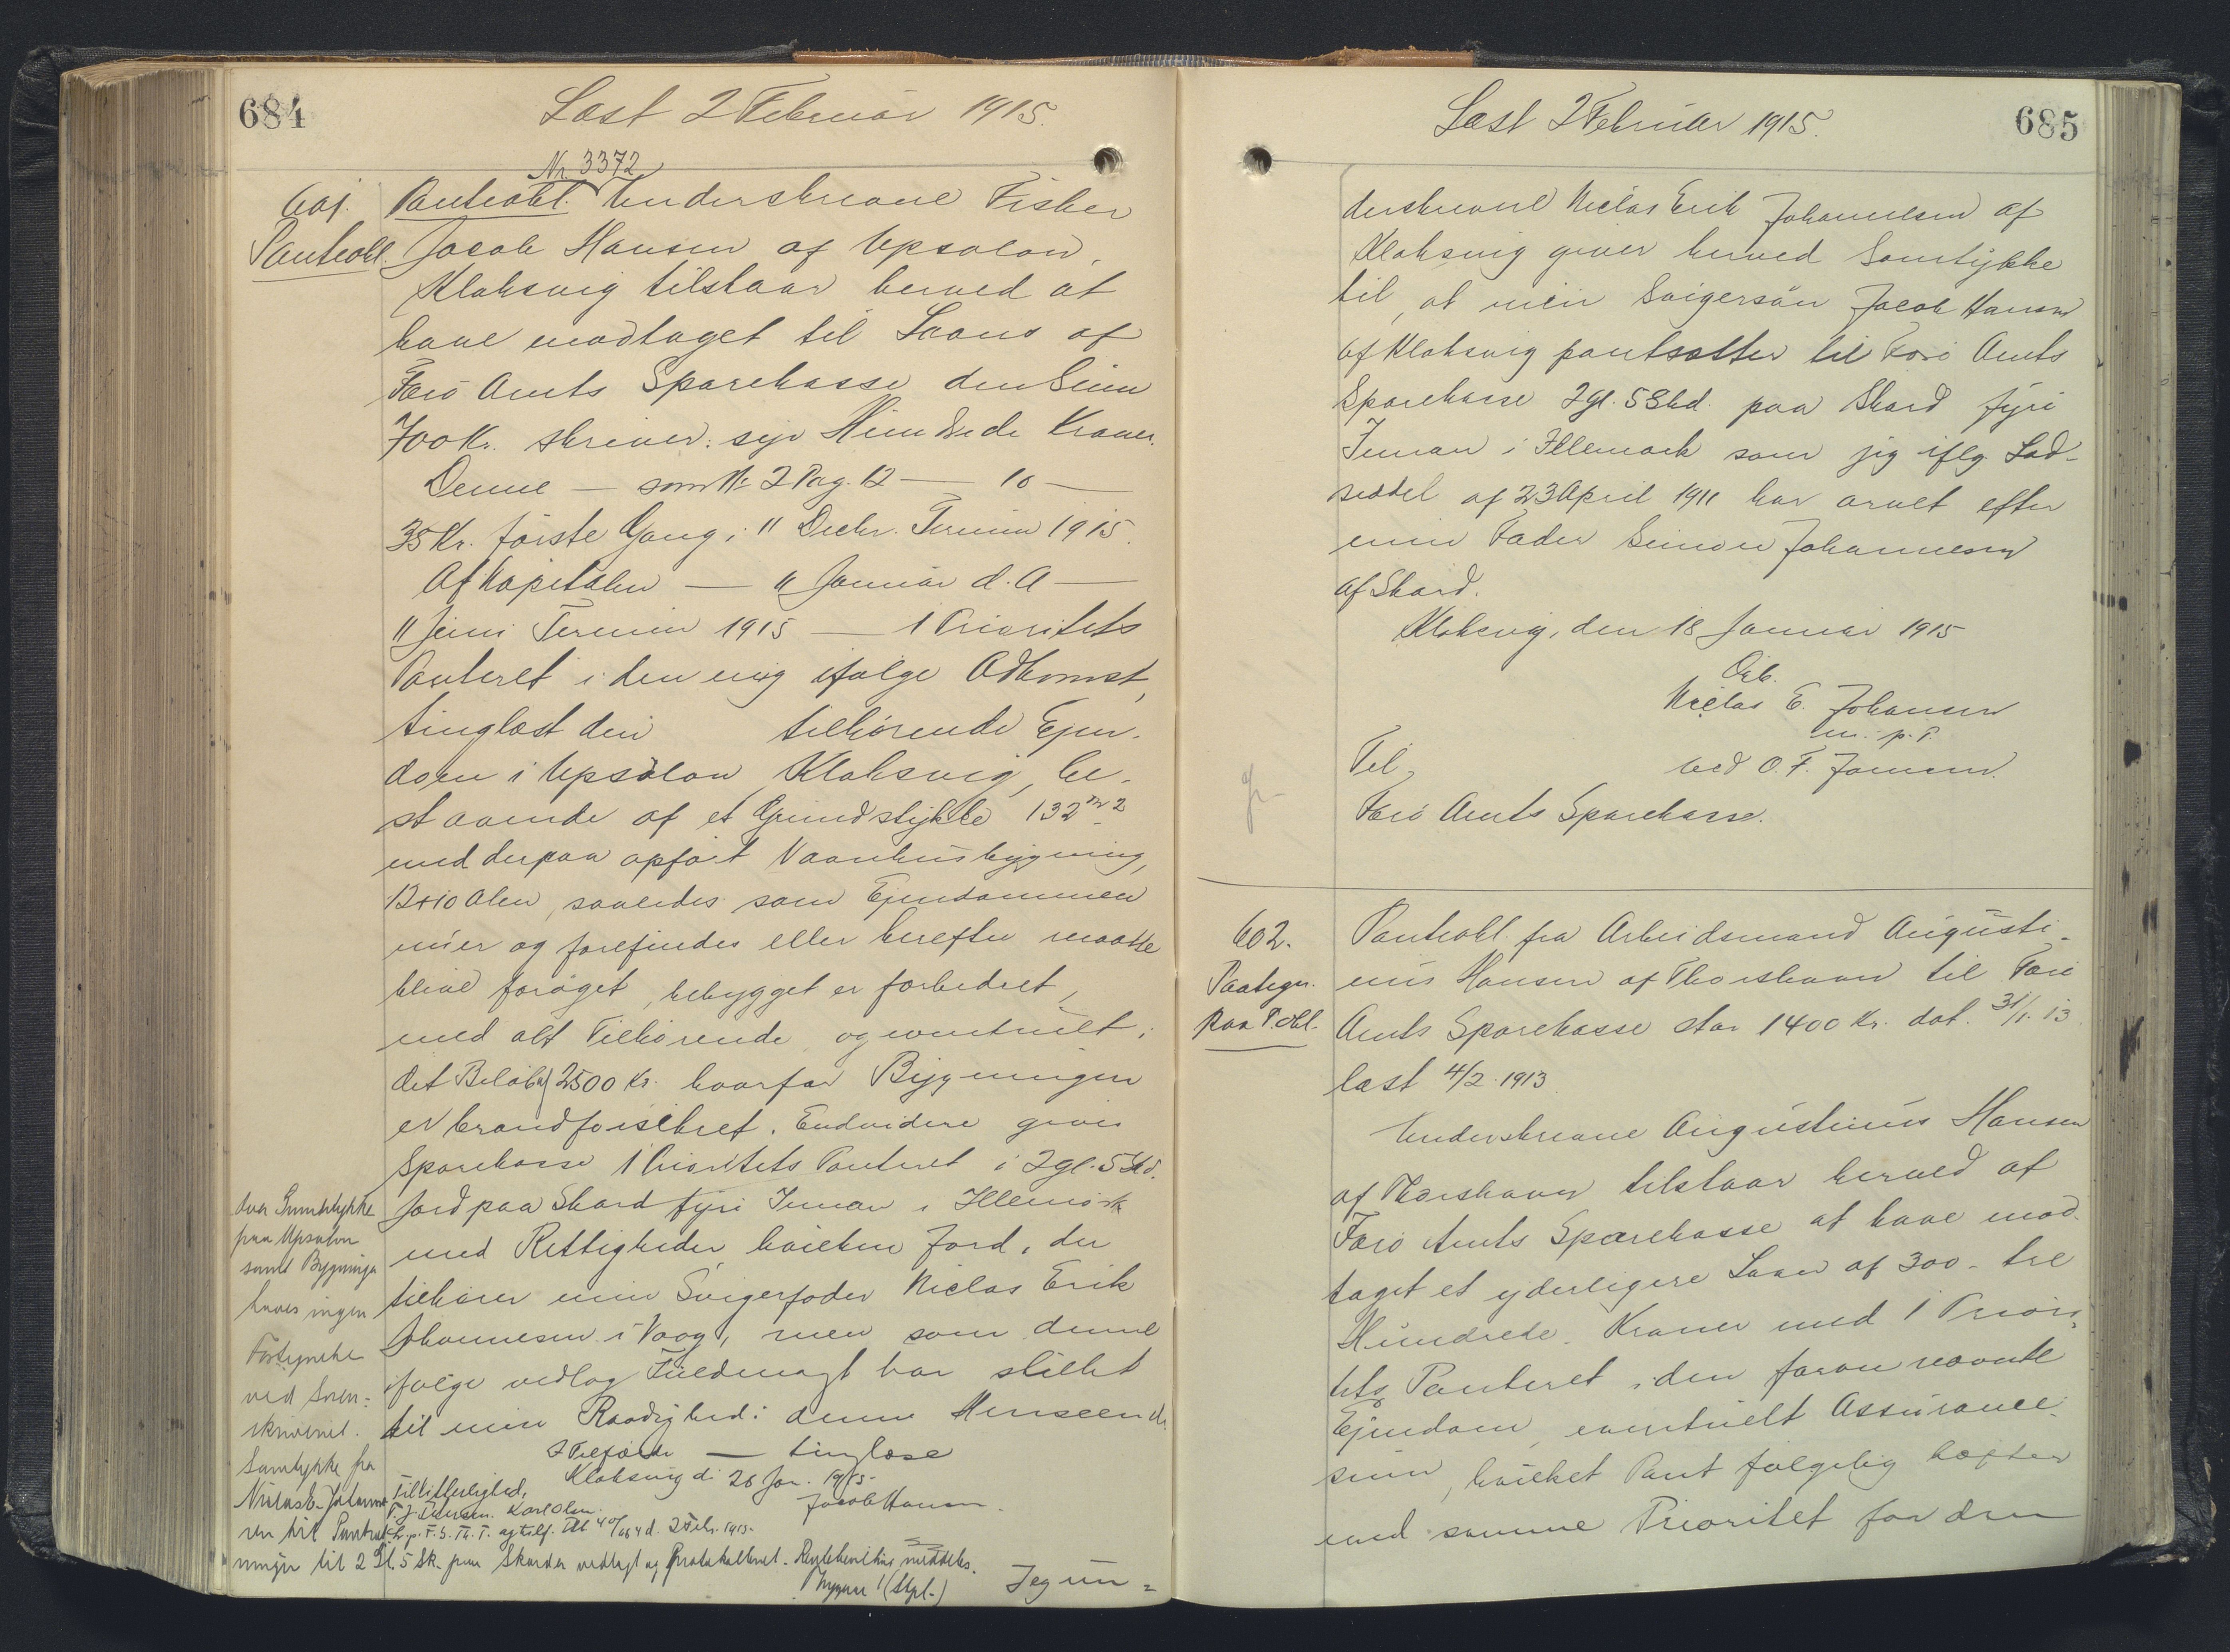 684
Læst 2 Februar 1915.
Nr. 3372
601.
Panteobl.
Panteobl. Underskrevne Fisker
Jacob Hansen af Upsalon,
Klaksvig tilstaar herved at
have modtaget til Laans af
Færø Amts Sparekasse den Sum
700 Kr. skriver: syv Hundrede Kroner.
Denne — som Nr 2 Pag. 12 — 10 —
35 Kr. første Gang i 11 Decbr. Termin 1915.
Af Kapitalen — 11 Januar d. A —
11 Juni Termin 1915 — 1 Prioritets
Panteret i den mig ifølge Adkomst,
tinglæst den tilhørende Ejen-
dom i Upsalon Klaksvig, be-
staaende af et Grundstykke 132 m2
med derpaa opført Vaanhusbygning,
12x10 Alen, saaledes som Ejendommen
nu er og forefindes eller herefter maatte
blive forøget, bebygget er forbedret,
med alt Tilhørende og eventuelt i
det Beløb af 2500 Kr. hvorfor Bygningen
er brandforsikret. Endvidere giver
Sparekasse 1 Prioritets Panteret i 2 gl. 5 Skd.
Jord paa Skard fyri Innan i Illemørk
med Rettigheder hvilken Jord, der
tilhører min Svigerfader Niclas Erik
Johannesen i Vaag, men som denne
ifølge vedlag Fuldmagt har stillet
til min Raadighed i denne Henseende.
I Tilfælde — tinglæse
Klaksvig d: 26 Jan. 1915-
Jacob Hansen.
Til Vitterlighed,
Karl Olsen.
d. 2 Febr. 1915.
over Grundstykke
paa Upsalon
samt Bygninga
haves ingen
ved Soren-
skriveriet.
Samtykke fra
Niclas E. Johanne
sen til Pantsæt
ningen til 2 Gl. 5 Sk. paa Skarde vedlagt og protokolleret. Genpart meddeles.
(Stpl.)
Jeg un-
685
Læst 2 Februar 1915.
derskrevne Niclas Erik Johannesen af
Klaksvig giver herved Samtykke
til, at min Svigersøn Jacob Hansen
af Klaksvig pantsætter til Færø Amts
Sparekasse 2 gl. 5 Skd. paa Skard fyri
Innan i Illemørk som jeg iflg. Lod-
seddel af 23 April 1911 har arvet efter
min Fader Simon Johannesen
af Skard.
Klaksvig, den 18 Januar 1915
Ærb.
Niclas E. Johannesen
m. p. P.
ved O. F. Joensen.
Til
Færø Amts Sparekasse.
602.
Paategn.
paa P. obl.
Panteobl. fra Arbeidsmand Augusti-
nus Hansen af Thorshavn til Færø
Amts Sparekasse stor 1400 Kr. dat. 31/1. 13
læst 4/2. 1913.
Underskrevne Augustinus Hansen
af Thorshavn tilstaar herved af
Færø Amts Sparekasse at have mod-
taget et yderligere Laan af 300 - tre
Hundrede - Kroner med 1 Priori-
tets Panteret i den foran nævnte
Ejendom, eventuelt Assurance-
sum, hvilket Pant følgelig hæfter
med samme Prioritet for den